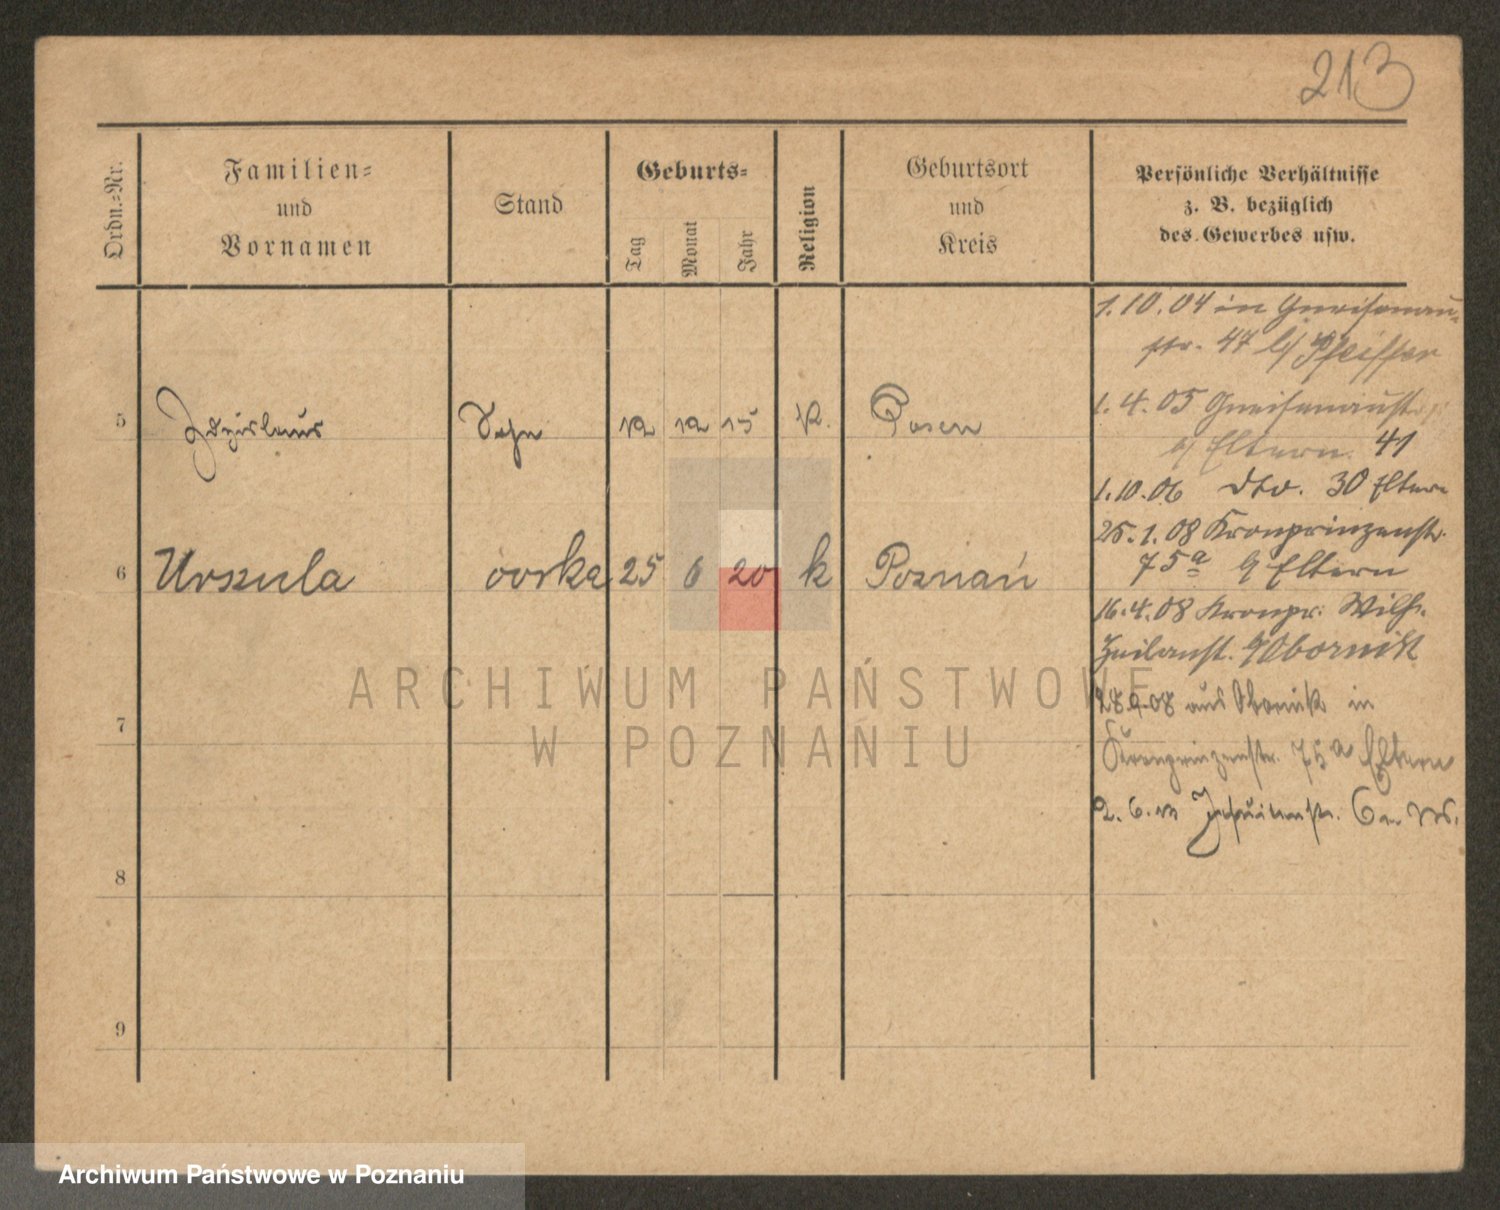 213
Ordn.-Nr.
Familien-
und
Vornamen
Stand
Geburts-
Tag
Monat
Jahr
Religion
Geburtsort
und
Kreis
Persönliche Verhältnisse
z. B. bezüglich
des Gewerbes usw.
1.10.04 in Gneisenau-
str. 47 b/ Pfeiffer
1.4.05 Gneisenaustr.
b/ Eltern 41
1.10.06 dto. 30 Eltern
25.1.08 Kronprinzenstr.
75a b/ Eltern
16.4.08 Kronpr. Wilh.
Heilanst. Obornik
28.9.08 aus Obornik in
Kronprinzenstr. 75a Eltern
2.6. Jesuitenstr.
5 Zdzislaus Sohn 12 12 15 K. Posen
6 Urszula córka 25 6 20 k Poznań
7
8
9
ARCHIWUM PAŃSTWOWE
W POZNANIU
Archiwum Państwowe w Poznaniu